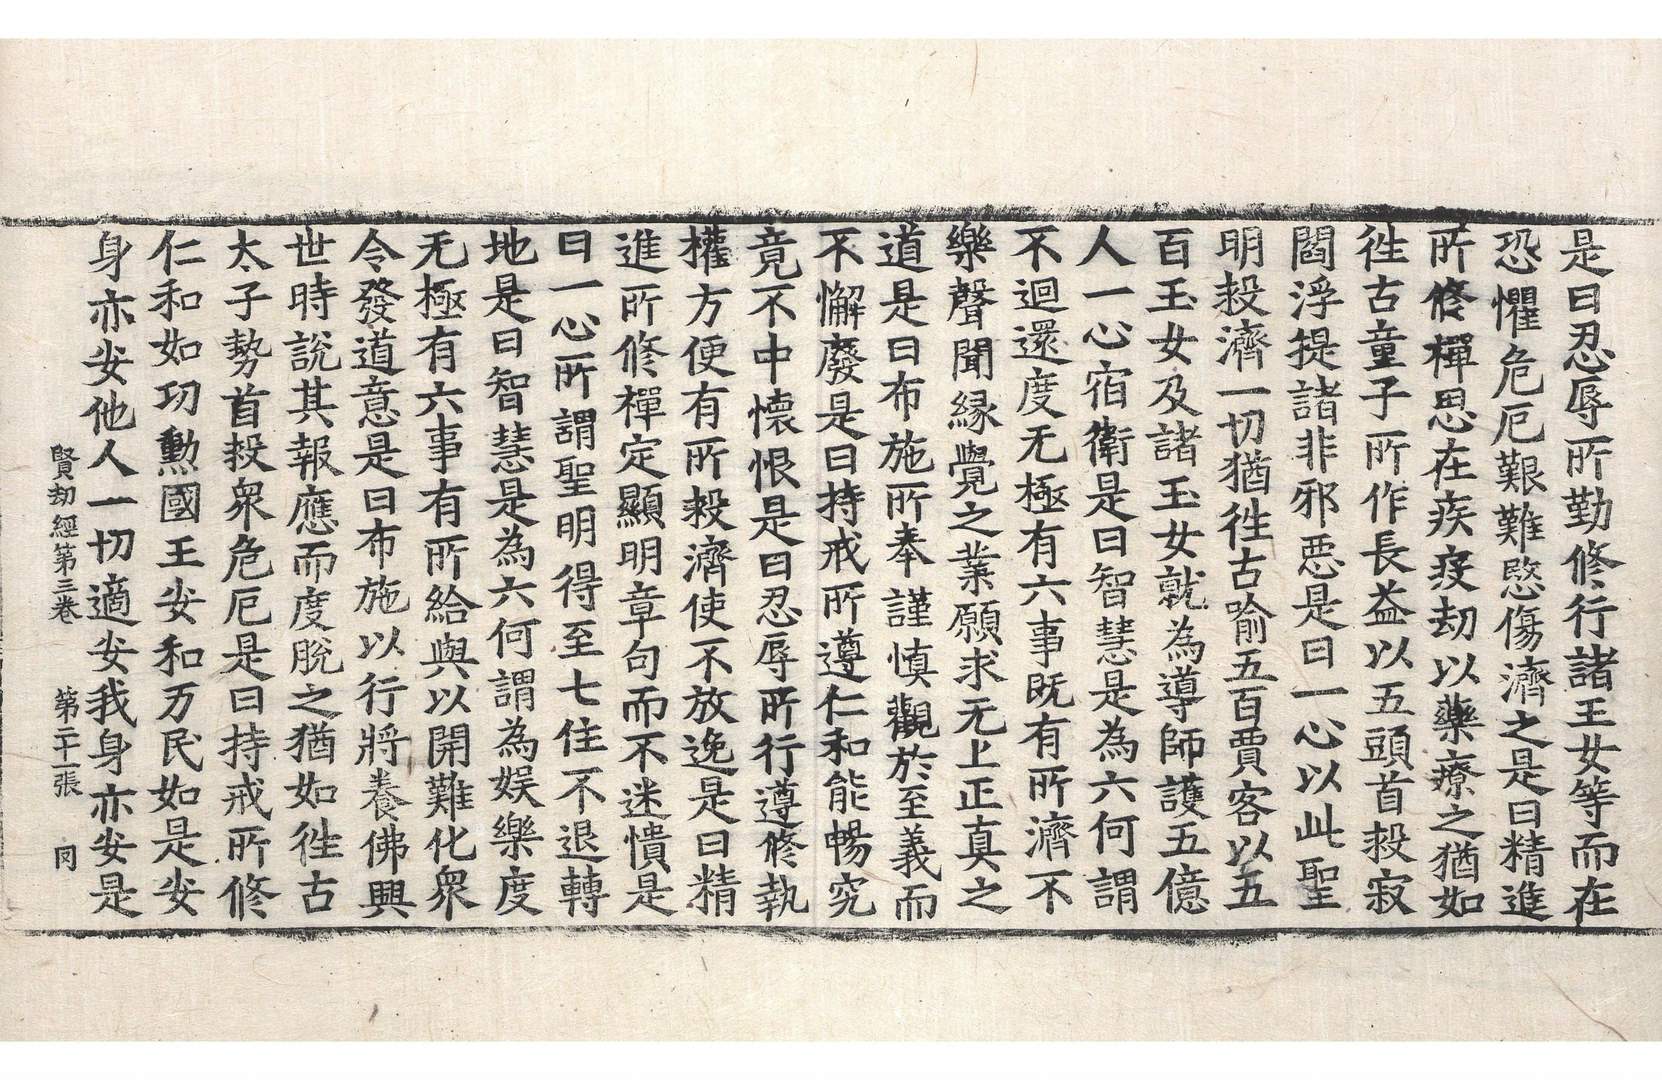 是曰忍辱所勤修行諸王女等而在
恐懼危厄艱難愍傷濟之是曰精進
所修禪思在疾疫劫以藥療之猶如
徃古童子所作長益以五頭首投寂
閻浮提諸非邪惡是曰一心以此聖
明救濟一切猶徃古喻五百賈客以五
百玉女及諸玉女就為導師護五億
人一心宿衛是曰智慧是為六何謂
不迴還度无極有六事既有所濟不
樂聲聞緣覺之業願求无上正真之
道是曰布施所奉謹慎觀於至義而
不懈廢是曰持戒所遵仁和能暢究
竟不中懷恨是曰忍辱所行遵修執
權方便有所救濟使不放逸是曰精
進所修禪定顯明章句而不迷憒是
曰一心所謂聖明得至七住不退轉
地是曰智慧是為六何謂為娛樂度
无極有六事有所給與以開難化衆
令發道意是曰布施以行將養佛興
世時說其報應而度脫之猶如徃古
太子勢首投衆危厄是曰持戒所修
仁和如功勳國王安和万民如是安
身亦安他人一切適安我身亦安是
賢劫經第三卷 第二十一張 同